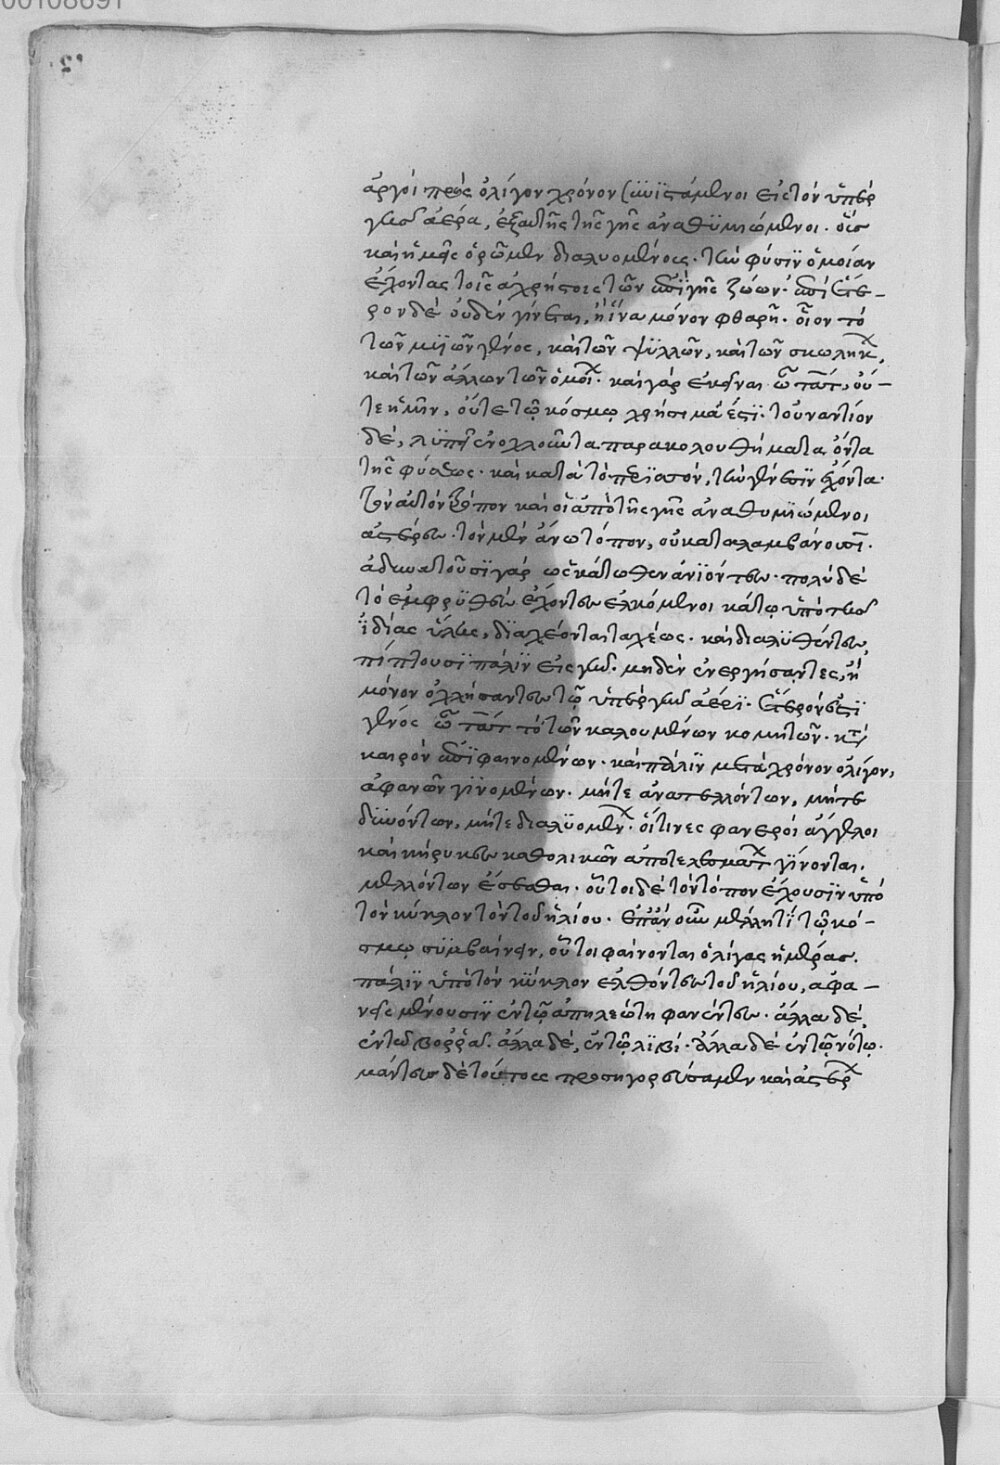 ἀργοὶ πρὸς ὀλίγον χρόνον συνϊστάμενοι εἰς τὸν ὑπὲρ
γῆν ἀέρα, ἐξ αὐτῆς τῆς γῆς ἀναθϋμιώμενοι. οὓς
καὶ ἡμεῖς ὁρῶμεν διαλυομένους. τὴν φύσϊν ὁμοίαν
ἔχοντας τοῖς ἀχρήστοις τῶν ἐπὶ γῆς ζώων. ἐπὶ ἕτε-
ρον δὲ οὐδὲν γίνεται, ἢ ἵνα μόνον φθαρῆ. οἷον τὸ
τῶν μϋιῶν γένος, καὶ τῶν ψϋλλῶν, καὶ τῶν σκωλήκ,
καὶ τῶν ἄλλων τῶν ὁμοί. καὶ γὰρ ἐκεῖνα ὦ τὰτ, οὔ-
τε ἡμῖν, οὔτε τῷ κόσμῳ χρήσιμά ἐστϊ. τοὐναντίον
δὲ, λϋπεῖ ἐνοχλοῦντα παρακολουθήματα ὄντα
τῆς φύσεως. καὶ κατὰ τὸ περϊσσὸν, τὴν γένεσϊν ἔχοντα.
τὸν αὐτὸν τρόπον καὶ οἱ ἀπὸ τῆς γῆς ἀναθυμϊώμενοι
ἀστέρες. τὸν μὲν ἄνω τόπον, οὐ καταλαμβάνουσϊ.
ἀδυνατοῦσϊ γὰρ ὡς κάτωθεν ἀνϊόντες. πολὺ δὲ
τὸ ἐμβρϊθὲς ἔχοντες ἑλκόμενοι κάτω ὑπὸ τῆς
ἰδίας ὕλης, δϊαχέονται ταχέως. καὶ διαλϋθέντες,
πίπτουσϊ πάλϊν εἰς γῆν. μηδὲν ἐνεργήσαντες, ἢ
μόνον ὀχλήσαντες τῷ ὑπὲρ γῆν ἀέρϊ. ἕτερόν ἐστϊ
γένος ὦ τὰτ τὸ τῶν καλουμένων κομητῶν. κατὰ
καιρὸν ἐπϊφαινομένων. καὶ πάλϊν μετὰ χρόνον ὀλίγον,
ἀφανῶν γϊνομένων. μήτε ἀνατελλόντων, μήτε
δϋνόντων, μήτε διαλϋομέν. οἵτινες φανεροὶ ἄγγελοι
καὶ κήρυκες καθολικῶν ἀποτελεσμάτ γίνονται.
μελλόντων ἔσεσθαι. οὗτοι δὲ τὸν τόπον ἔχουσϊν ὑπὸ
τὸν κύκλον τὸν τοῦ ἡλίου. ἐπὰν οὖν μέλλῃ τὶ τῷ κό-
σμῳ σϋμβαίνειν, οὗτοι φαίνονται ὀλίγας ἡμέρας.
πάλϊν ὑπὸ τὸν κϋκλον ἐλθόντες τοῦ ἡλίου, ἀφα-
νεῖς μένουσϊν ἐν τῷ ἀπηλιώτη φανέντες. ἄλλα δὲ,
ἐν τῶ βορρᾶ. ἄλλα δὲ, ἐν τῷ λϊβί. ἄλλα δὲ ἐν τῷ νότῳ.
μάντεις δὲ τούτους προσηγορεύσαμεν καὶ ἀστέρ